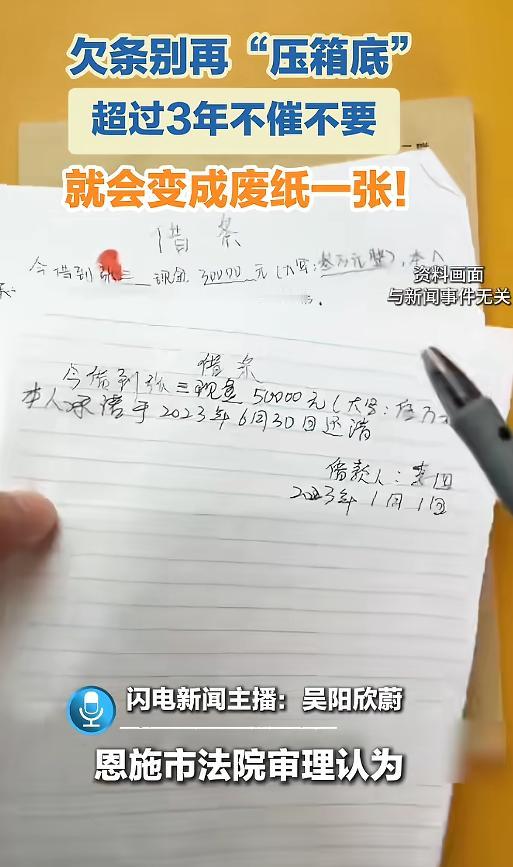 欠条别再“压箱底”
超过3年不催不要
就会变成废纸一张!
借条
今借到张三 现金 30000 元(大写:叁万元整),本人
资料画面
与新闻事件无关
借条
今借到张三现金 50000元(大写:伍万元
本人承诺于2023年6月30日还清
借款人:李四
2023年1月1日
闪电新闻主播:吴阳欣蔚
恩施市法院审理认为